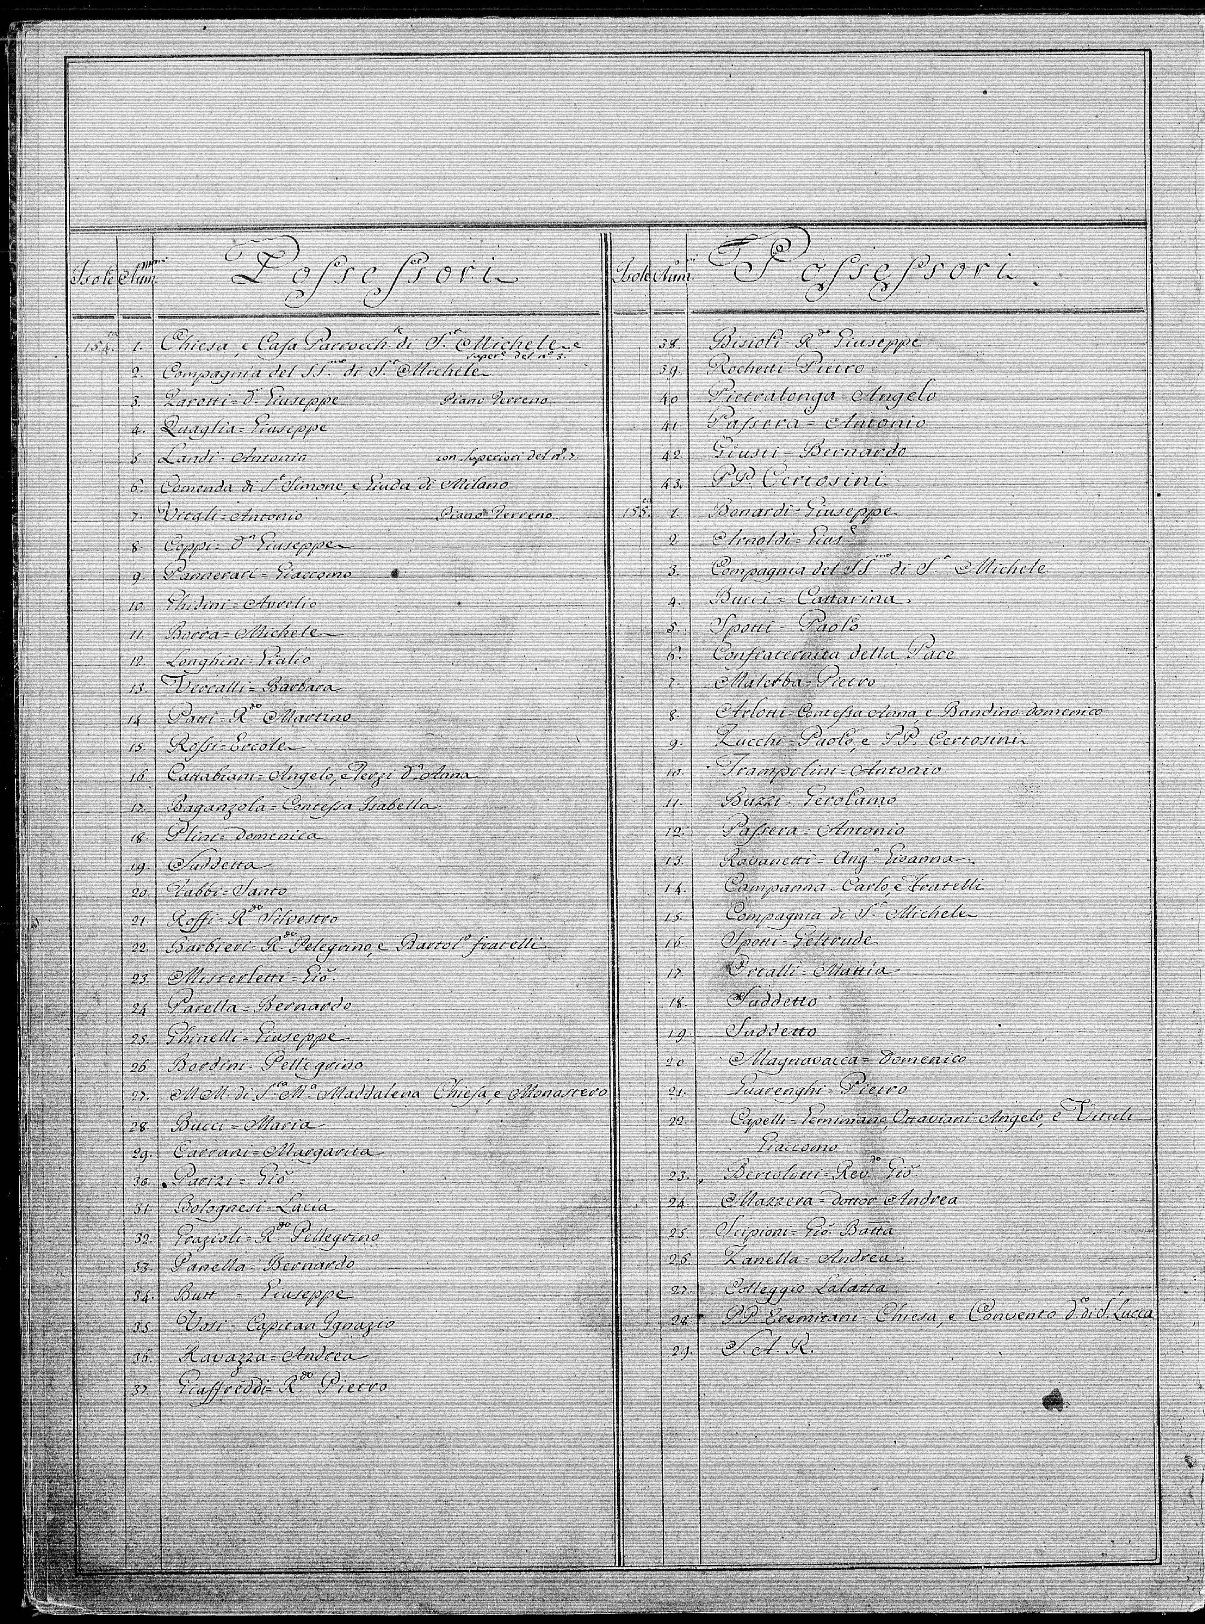 Isole Num. Possessori
154. 1. Chiesa, e Casa Parrocch.ª di S. Michele e
super.e del n.º 3.
2. Compagnia del SS.mo di S. Michele
3. Zarotti = D. Giuseppe Piano Terreno
4. Quaglia = Giuseppe
5. Landi = Antonia con superiori del nº 7
6. Comenda di S. Simone, e Giuda di Milano
7. Vitali = Antonio Piano Terreno
8. Ceppi = D. Giuseppe
9. Pannerari = Giaccomo
10. Ghidini = Aurelio
11. Bocra = Michele
12. Longhini = Giulio
13. Vercalli = Barbara
14. Patti = R.do Martino
15. Rossi = Ercole
16. Cattabiani = Angelo, e Terzi D. Anna
17. Baganzola = Contessa Isabella
18. Plini = Domenica
19. Suddetta
20. Tabbi = Santo
21. Roffi = R.do Silvestro
22. Barbieri = R.do Pelegrino, e Bartol.o fratelli
23. Misterletti = Gio.
24. Parella = Bernardo
25. Ghinelli = Giuseppe
26. Bordini = Pellegrino
27. MM. di S.ta M.a Maddalena Chiesa, e Monastero
28. Bucci = Maria
29. Carrani = Margarita
30. Parizi = Gio
31. Bolognesi = Lucia
32. Grazioli = R.do Pellegrino
33. Panella = Bernardo
34. Butt = Giuseppe
35. Capitan Ignazio
36. Ravazza = Andrea
37. Giaffreddi = R.do Pietro
Isole Num. Possessori.
38. Bisioli = R.do Giuseppe
39. Rochetti Pietro
40. Pietralonga = Angelo
41. Passera = Antonio
42. Giusti = Bernardo
43. P.P. Certosini
155. 1. Bonardi = Giuseppe
2. Arnoldi = Gius.e
3. Compagnia del SS.mo di S. Michele
4. Bucci = Cattarina
5. Spotti = Paolo
6. Confraternita della Pace
7. Malerba = Pietro
8. Arlotti = Contessa Anna, e Bandino Domenico
9. Zucchi = Paolo, e P.P. Certosini
10. Trampolini = Antonio
11. Buzzi = Gerolamo
12. Passera = Antonio
13. Ravanetti = Ang.a Gioanna
14. Campanna = Carlo, e fratelli
15. Compagnia di S. Michele
16. Spotti = Geltrude
17. Ortalli = Mattia
18. Suddetto
19. Suddetto
20. Magnavacca = Domenico
21. Guarenghi = Pietro
22. Capelli = Geminiano, Ottaviani Angelo, e Vitali
Giaccomo
23. Bertolotti = Rev.do Gio
24. Mazzera = Dottor Andrea
25. Scipioni = Gio. Batta
26. Zanella = Andrea
27. Colleggio Lalatta
28. P.P. Eremitani Chiesa, e Convento d.to di S. Lucca
29. S. A. R.